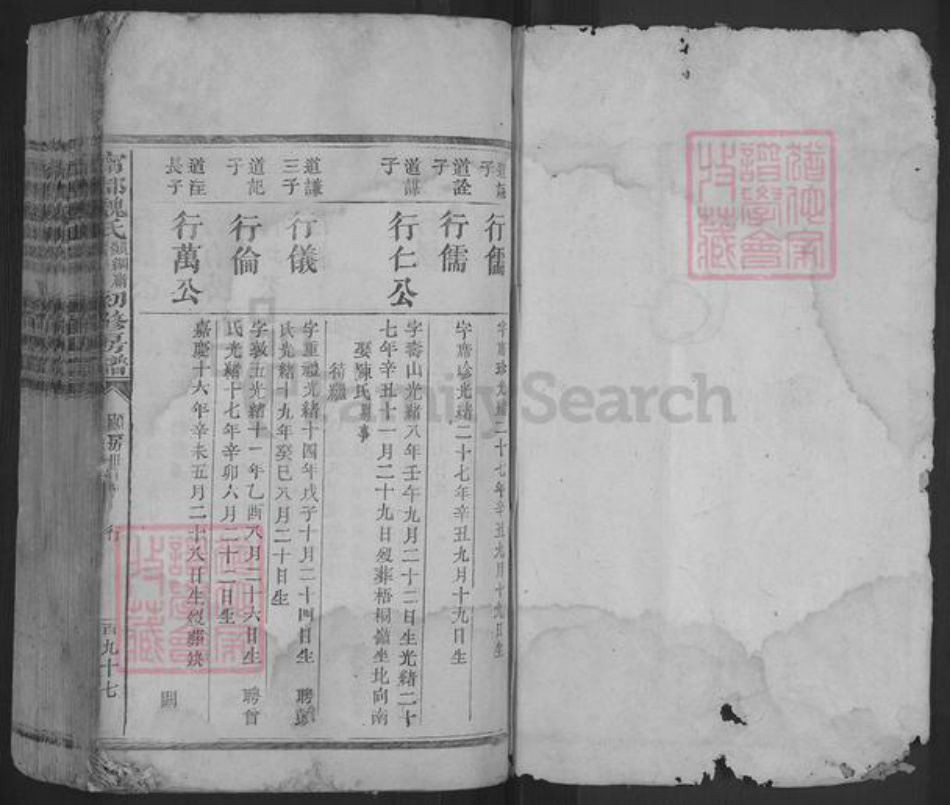 道諡
子
行儒
字席珍光緒二十七年辛丑九月十九日生
道詮
子
行儒
字席珍光緒二十七年辛丑九月十九日生
道謀
子
行仁公
字壽山光緒八年壬午九月二十二日生光緒二十
七年辛丑十一月二十九日歿葬梧桐嶺坐北向南
娶陳氏
待繼
道謙
三子
行儀
字重禮光緒十四年戊子十月二十四日生 聘
氏光緒十九年癸巳八月二十日生
道記
子
行倫
字敦五光緒十一年乙酉八月二十六日生 聘曾
氏光緒十七年辛卯六月二十二日生
道注
長子
行萬公
嘉慶十六年辛未五月二十八日生歿葬缺
關
甯都魏氏 初修房譜
行
百九十七
譜學會
收藏
譜學會
收藏
FamilySearch